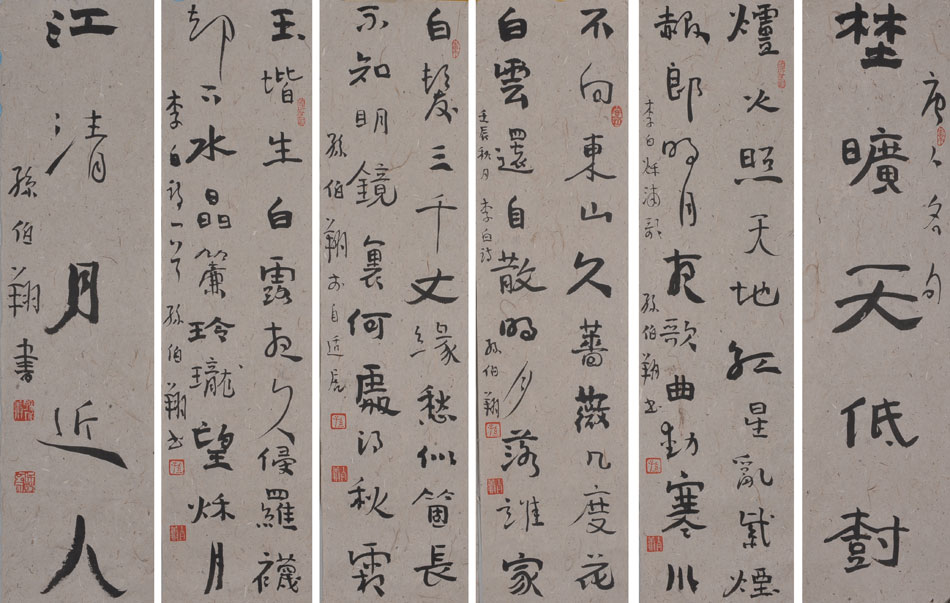 唐人名句
埜曠天低尌
爐火照天地紅星亂紫煙
赧郎明月夜歌曲動寒川
李白秌浦歌 孫伯翔书
不向東山久薔薇几度花
白雲還自散明月落誰家
壬辰秋月 李白詩 孫伯翔
白髮三千丈緣愁似箇長
不知明鏡裏何處得秋霜
孫伯翔於自適居
玉堦生白露夜久侵羅襪
却下水晶簾玲瓏望秌月
李白詩一首 孫伯翔书
江清月近人
孫伯翔書